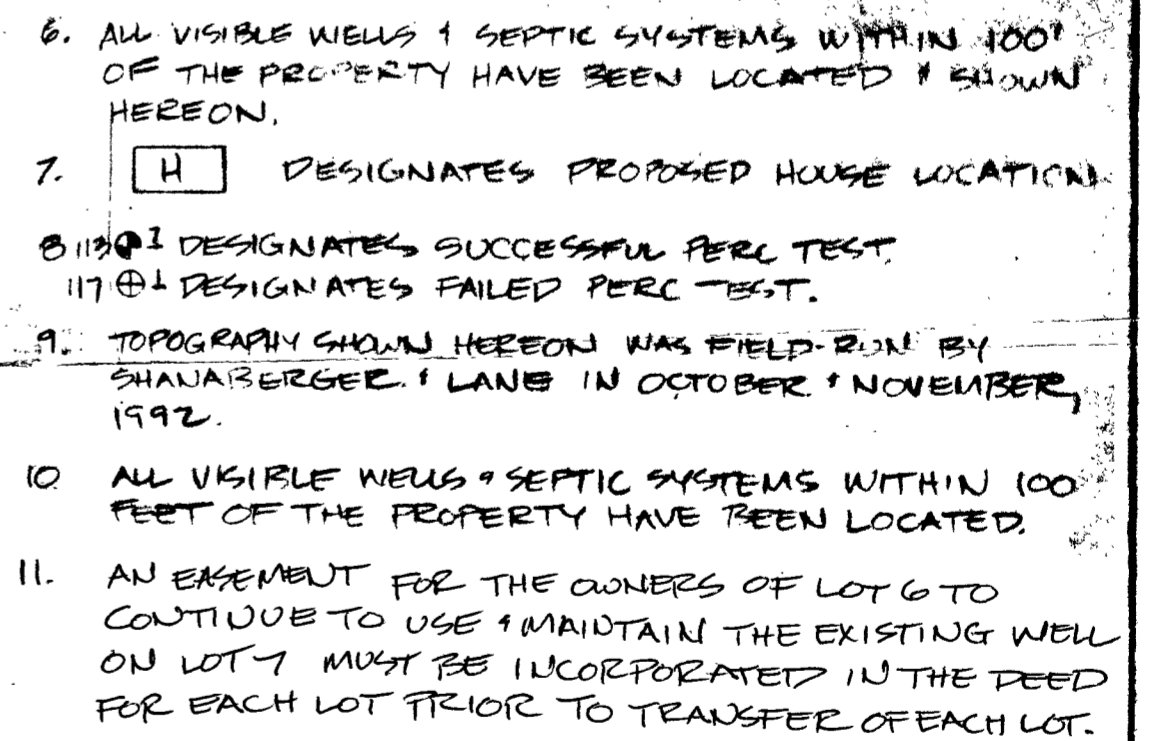 6. ALL VISIBLE WELLS & SEPTIC SYSTEMS WITHIN 100'
OF THE PROPERTY HAVE BEEN LOCATED & SHOWN
HEREON.
7. H DESIGNATES PROPOSED HOUSE LOCATION
8 113 1 DESIGNATES SUCCESSFUL PERC TEST.
117 1 DESIGNATES FAILED PERC TEST.
9. TOPOGRAPHY SHOWN HEREON WAS FIELD-RUN BY
SHANABERGER & LANE IN OCTOBER & NOVEMBER,
1992.
10 ALL VISIBLE WELLS & SEPTIC SYSTEMS WITHIN 100
FEET OF THE PROPERTY HAVE BEEN LOCATED.
11. AN EASEMENT FOR THE OWNERS OF LOT 6 TO
CONTINUE TO USE & MAINTAIN THE EXISTING WELL
ON LOT 7 MUST BE INCORPORATED IN THE DEED
FOR EACH LOT PRIOR TO TRANSFER OF EACH LOT.